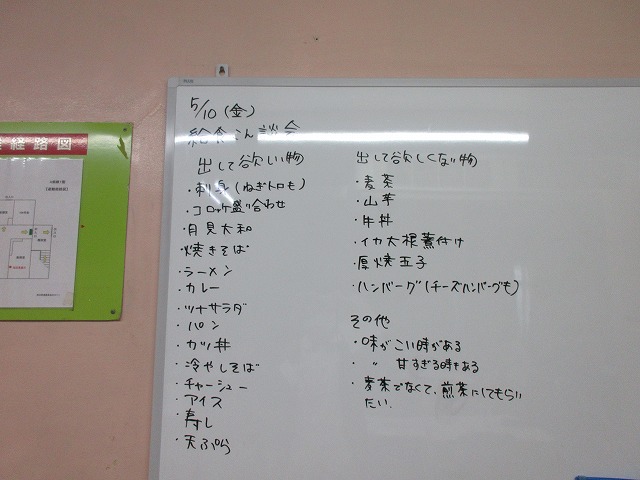 5/10 (金)
給食こん談会
出して欲しい物
・刺身(ねぎトロも)
・コロッケ盛り合わせ
・月見大和
・焼きそば
・ラーメン
・カレー
・ツナサラダ
・パン
・カツ丼
・冷やしそば
・チャーシュー
・アイス
・寿し
・天ぷら
出して欲しくない物
・麦茶
・山芋
・牛丼
・イカ大根煮付け
・厚焼玉子
・ハンバーグ(チーズハンバーグも)
その他
・味がこい時がある
・〃 甘すぎる時もある
・麦茶でなくて、煎茶にしてもらい
たい.
経路図